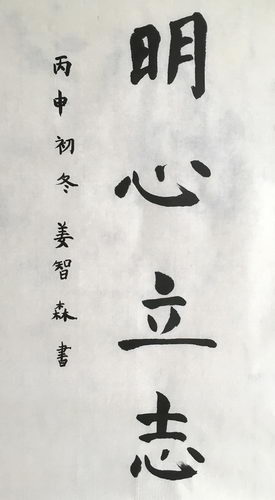 明心立志
丙申初冬 姜智森書